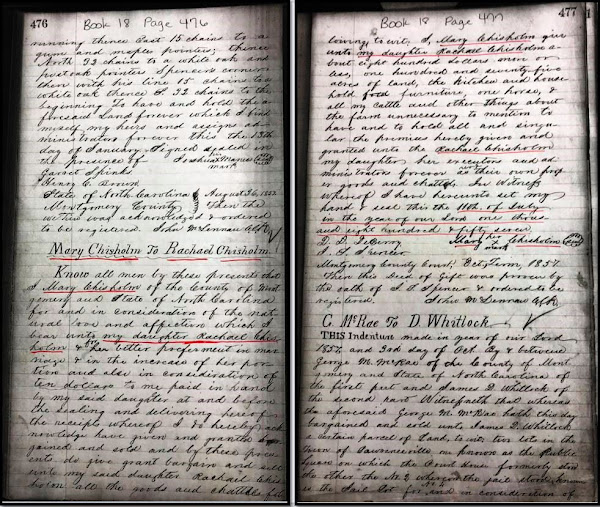 476
Book 18 Page 476
running thence East 15 chains to a
gum and maple pointers; thence
North 22 chains to a white oak and
post oak pointers Spencer's corner
then with his line 15 chains to a
white oak thence S. 22 chains to the
beginning To have and hold the a
foresaid Land forever which I bind
myself my heirs and assigns ad
ministrators forever this the 13th
day of January Signed sealed in
the presence of Joshua his mark
Garret Spinks
Henry C. Brown
State of North Carolina August
Montgomery County Then the
within was acknowledged & ordered
to be registered. John McLennan
Mary Chisholm To Rachael Chisholm
Know all men by these presents that
I Mary Chisholm of the County of Mont
gomery and State of North Carolina
for and in consideration of the nat
ural love and affection which I
bear unto my daughter Rachael Chis
holm & for her better preferment in mar
riage & in the increase of her por
tion and also in consideration of
ten dollars to me paid in hand
by my said daughter at and before
the sealing and delivering hereof
the receipts whereof I do hereby ack
nowledge have given and granted bar
gained and sold and by these pres
ents do give grant bargain and sell
unto my said daughter Rachael Chis
holm all the goods and chattles fol
Book 18 Page 477
477
lowing to wit. I, Mary Chisholm give
unto my daughter Rachael Chisholm a
bout eight hundred dollars more or
less, one hundred and seventy five
acres of land, the kitchen and house
hold food furniture, one horse, &
all my cattle and other things about
the farm unnecessary to mention to
have and to hold all and singu
lar the premises hereby given and
granted unto the Rachael Chisholm
my daughter her executors and ad
ministrators forever as their own prop
er goods and chattels. In Witness
whereof I have hereunto set my
hand & seal this the 11th. of July
in the year of our Lord one thous
and eight hundred & fifty seven.
Mary her X mark Chisholm Seal
Montgomery County Court, Oct. Term 1857.
Then this Deed of Gift was proven by
the oath of Spencer & ordered to be
registered. John McLennan
C. McRae To D. Whitlock.
THIS Indenture made in year of our Lord
1857 and 3rd day of Oct. By & between
George M. McRae of the County of Mont
gomery and State of North Carolina of
the first part and James D. Whitlock of
the second part Witnesseth that whereas
the aforesaid George M. McRae hath this day
bargained and sold unto James D. Whitlock
a certain parcel of Land, to wit: two lots in the
town of Lawrenceville one known as the Public
Square on which the Court house formerly stood
the other the No. 2 whereon the jail stood known
as the Jail Lot for and in consideration of